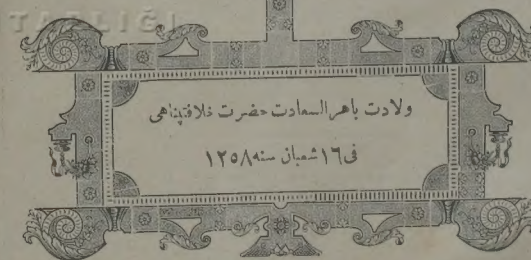 TARLIĞI
ولادت باهر السعادت حضرت خلافتپناهی
فی ١٦ شعبان سنه ١٢٥٨